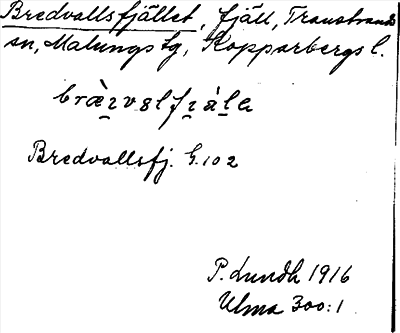 Bredvallsfjället, fjäll, Transtrands
sn, Malungs tg, Kopparbergs l.
Bredvallsfj. G. 102
P. Lundh 1916
Ulma 300:1